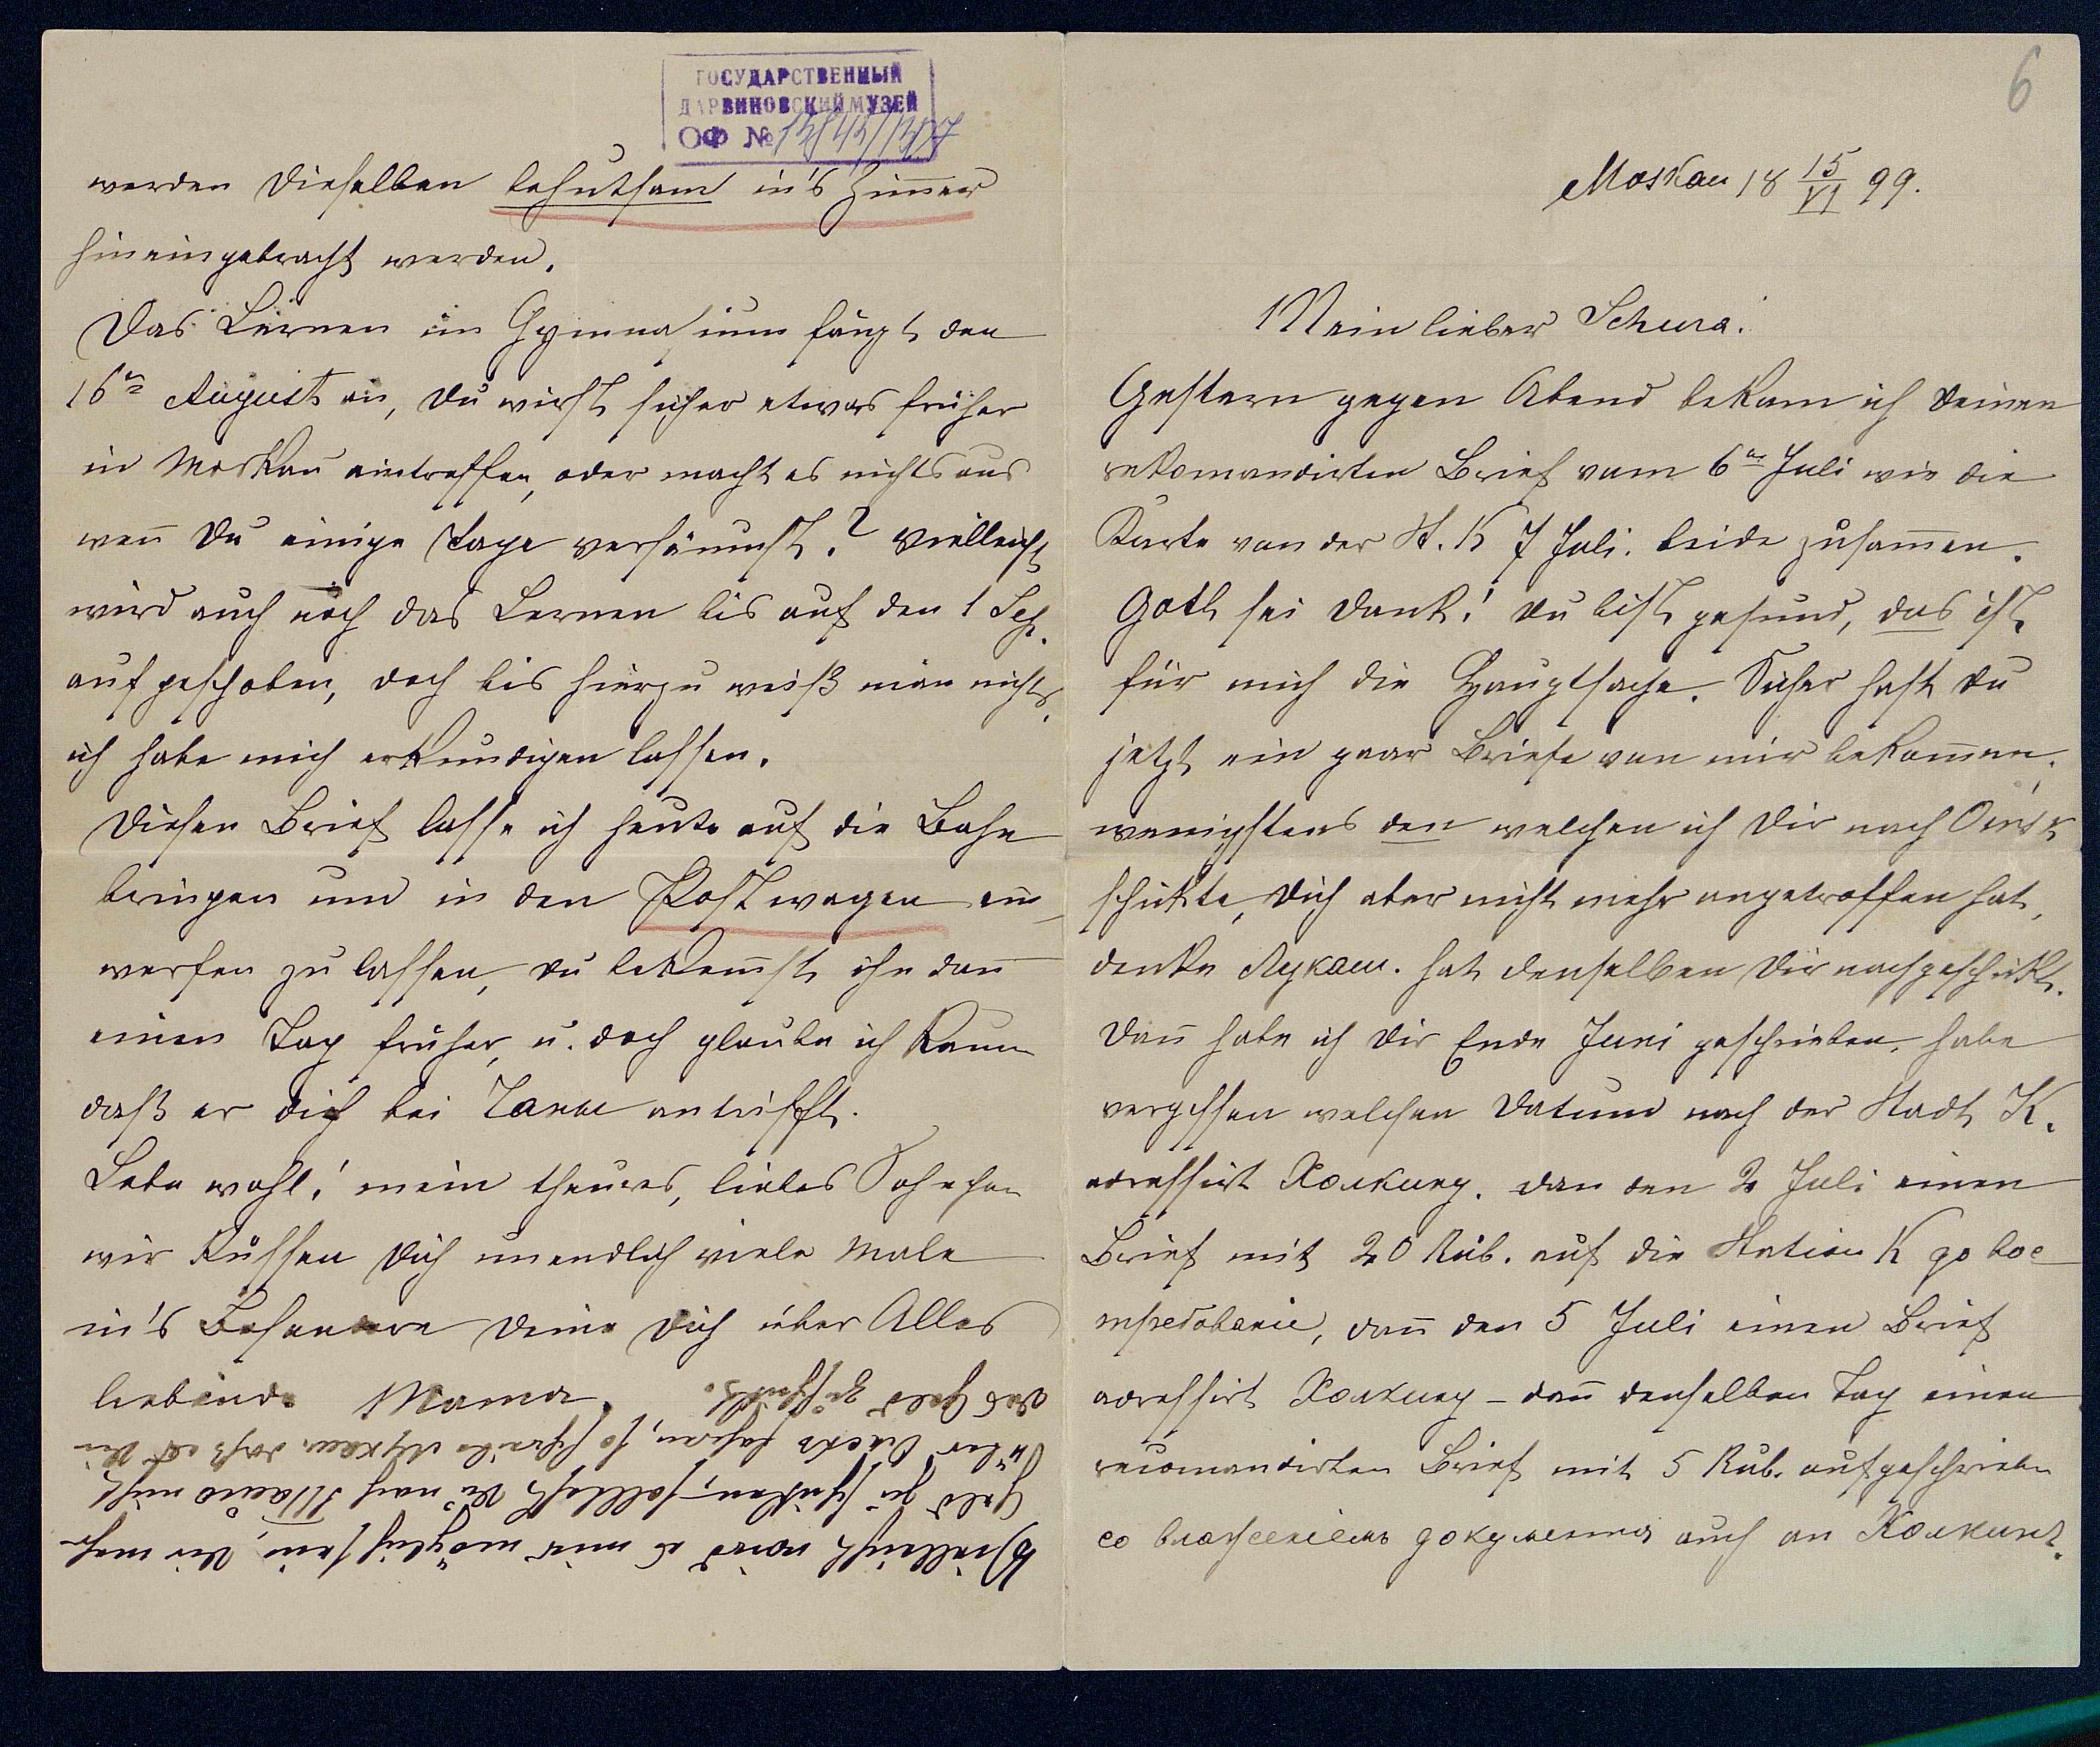 6
Moskau 18 15/VI 99.
Mein lieber Schura!
Gestern gegen Abend bekam ich deinen
rekomandirten Brief vom 6ten Juli wie die
Karte von der St. K 7 Juli. beide zusam̅en.
Gott sei Dank! du bist gesund, das ist
für mich die Hauptsache. Sicher hast du
jetzt ein paar Briefe von mir bekom̅en.
wenigstens den welchen ich Dir nach
schickte, Dich aber nicht mehr angetroffen hat,
denke Лукаш. hat denselben Dir nachgeschickt.
Dan̅ habe ich Dir Ende Juni geschrieben, habe
vergessen welchen Datum nach der Stadt K.
adressirt Колкину. dan den 2 Juli einen
Brief mit 20 Rub. auf die Station K до вос
требованіе, dan̅ den 5 Juli einen Brief
adressirt Колкину – dan̅ denselben Tag einen
recomandirten Brief mit 5 Rub. aufgeschrieben
со вложеніемъ документа auch an Колкинъ.
ГОСУДАРСТВЕННЫЙ
ДАРВИНОВСКИЙ МУЗЕЙ
ОФ №
werden dieselben behutsam in's Zim̅er
hineingebracht werden.
Das Lernen im Gymnasium fängt den
16ten August an, du wirst sicher etwas früher
in Moskau eintreffen, oder macht es nichts aus
wen̅ du einige Tage versäumst.? Vielleicht
wird auch noch das Lernen bis auf den 1 Sept.
aufgeschoben, doch bis hierzu weiß man nichts,
ich habe mich erkundigen lassen.
Diesen Brief lasse ich heute auf die Bahn
bringen und in den Postwagen ein
werfen zu lassen, du bekom̅st ihn dan̅
einen Tag früher, u. doch glaube ich kaum
daß er dich bei antrifft.
Lebe wohl! mein theures, liebes Söhnchen
wir küssen Dich unendlich viele Male
in's Besondere Deine Dich über Alles
liebende Mama.
Vielleicht wird es mir möglich sein, Dir mehr
Geld zu schicken, solltest du nach nicht
über fahren, so schreibe Лукаш daß er dir
das Geld zuschickt.